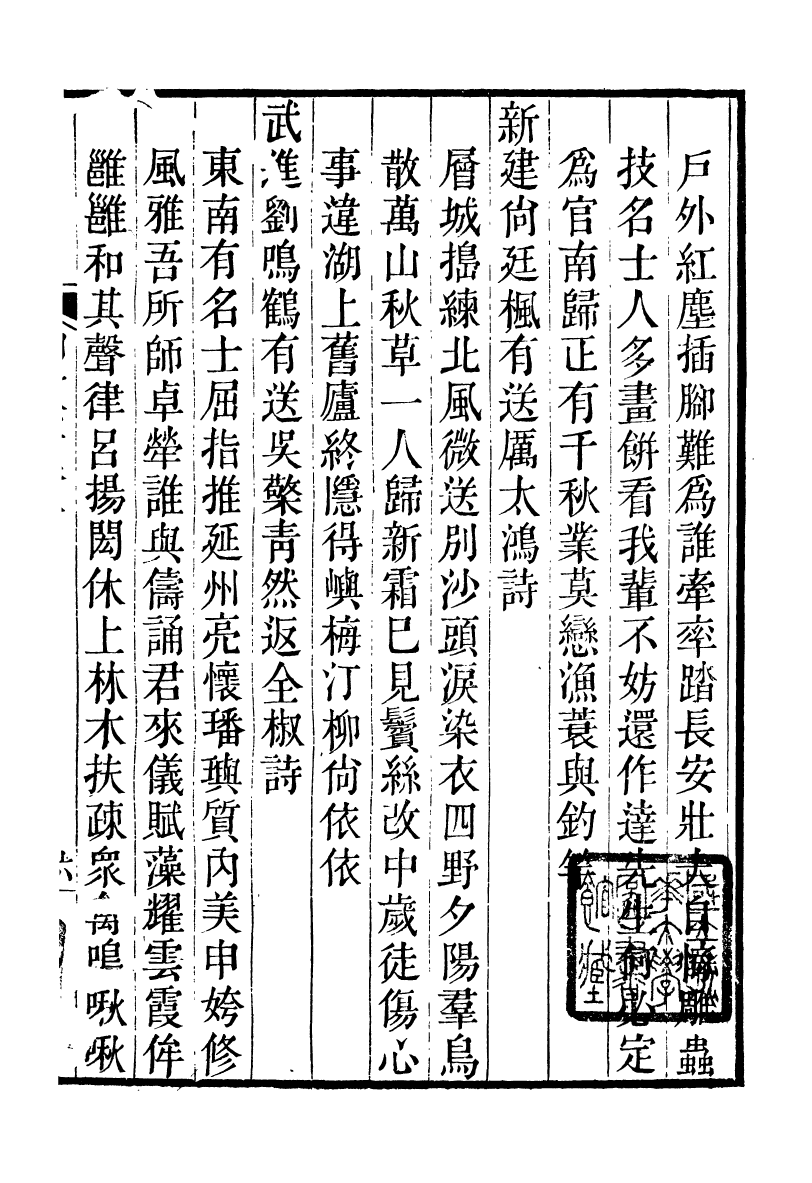 戶外紅塵插腳難爲誰牽率踏長安壯夫自悔雕蟲
技名士人多畫餅看我輩不妨還作達先生何必定
爲官南歸正有千秋業莫戀漁蓑與釣竿
新建尙廷楓有送厲太鴻詩
層城搗練北風微送別沙頭淚染衣四野夕陽羣鳥
散萬山秋草一人歸新霜已見鬢絲改中歲徒傷心
事違湖上舊廬終隱得嶼梅汀柳尙依依
武進劉鳴鶴有送吳檠靑然返全椒詩
東南有名士屈指推延州亮懷璠璵質內美申姱修
風雅吾所師卓犖誰與儔誦君來儀賦藻耀雲霞侔
雝雝和其聲律呂揚閎休上林木扶疎衆禽鳴啾啾
六